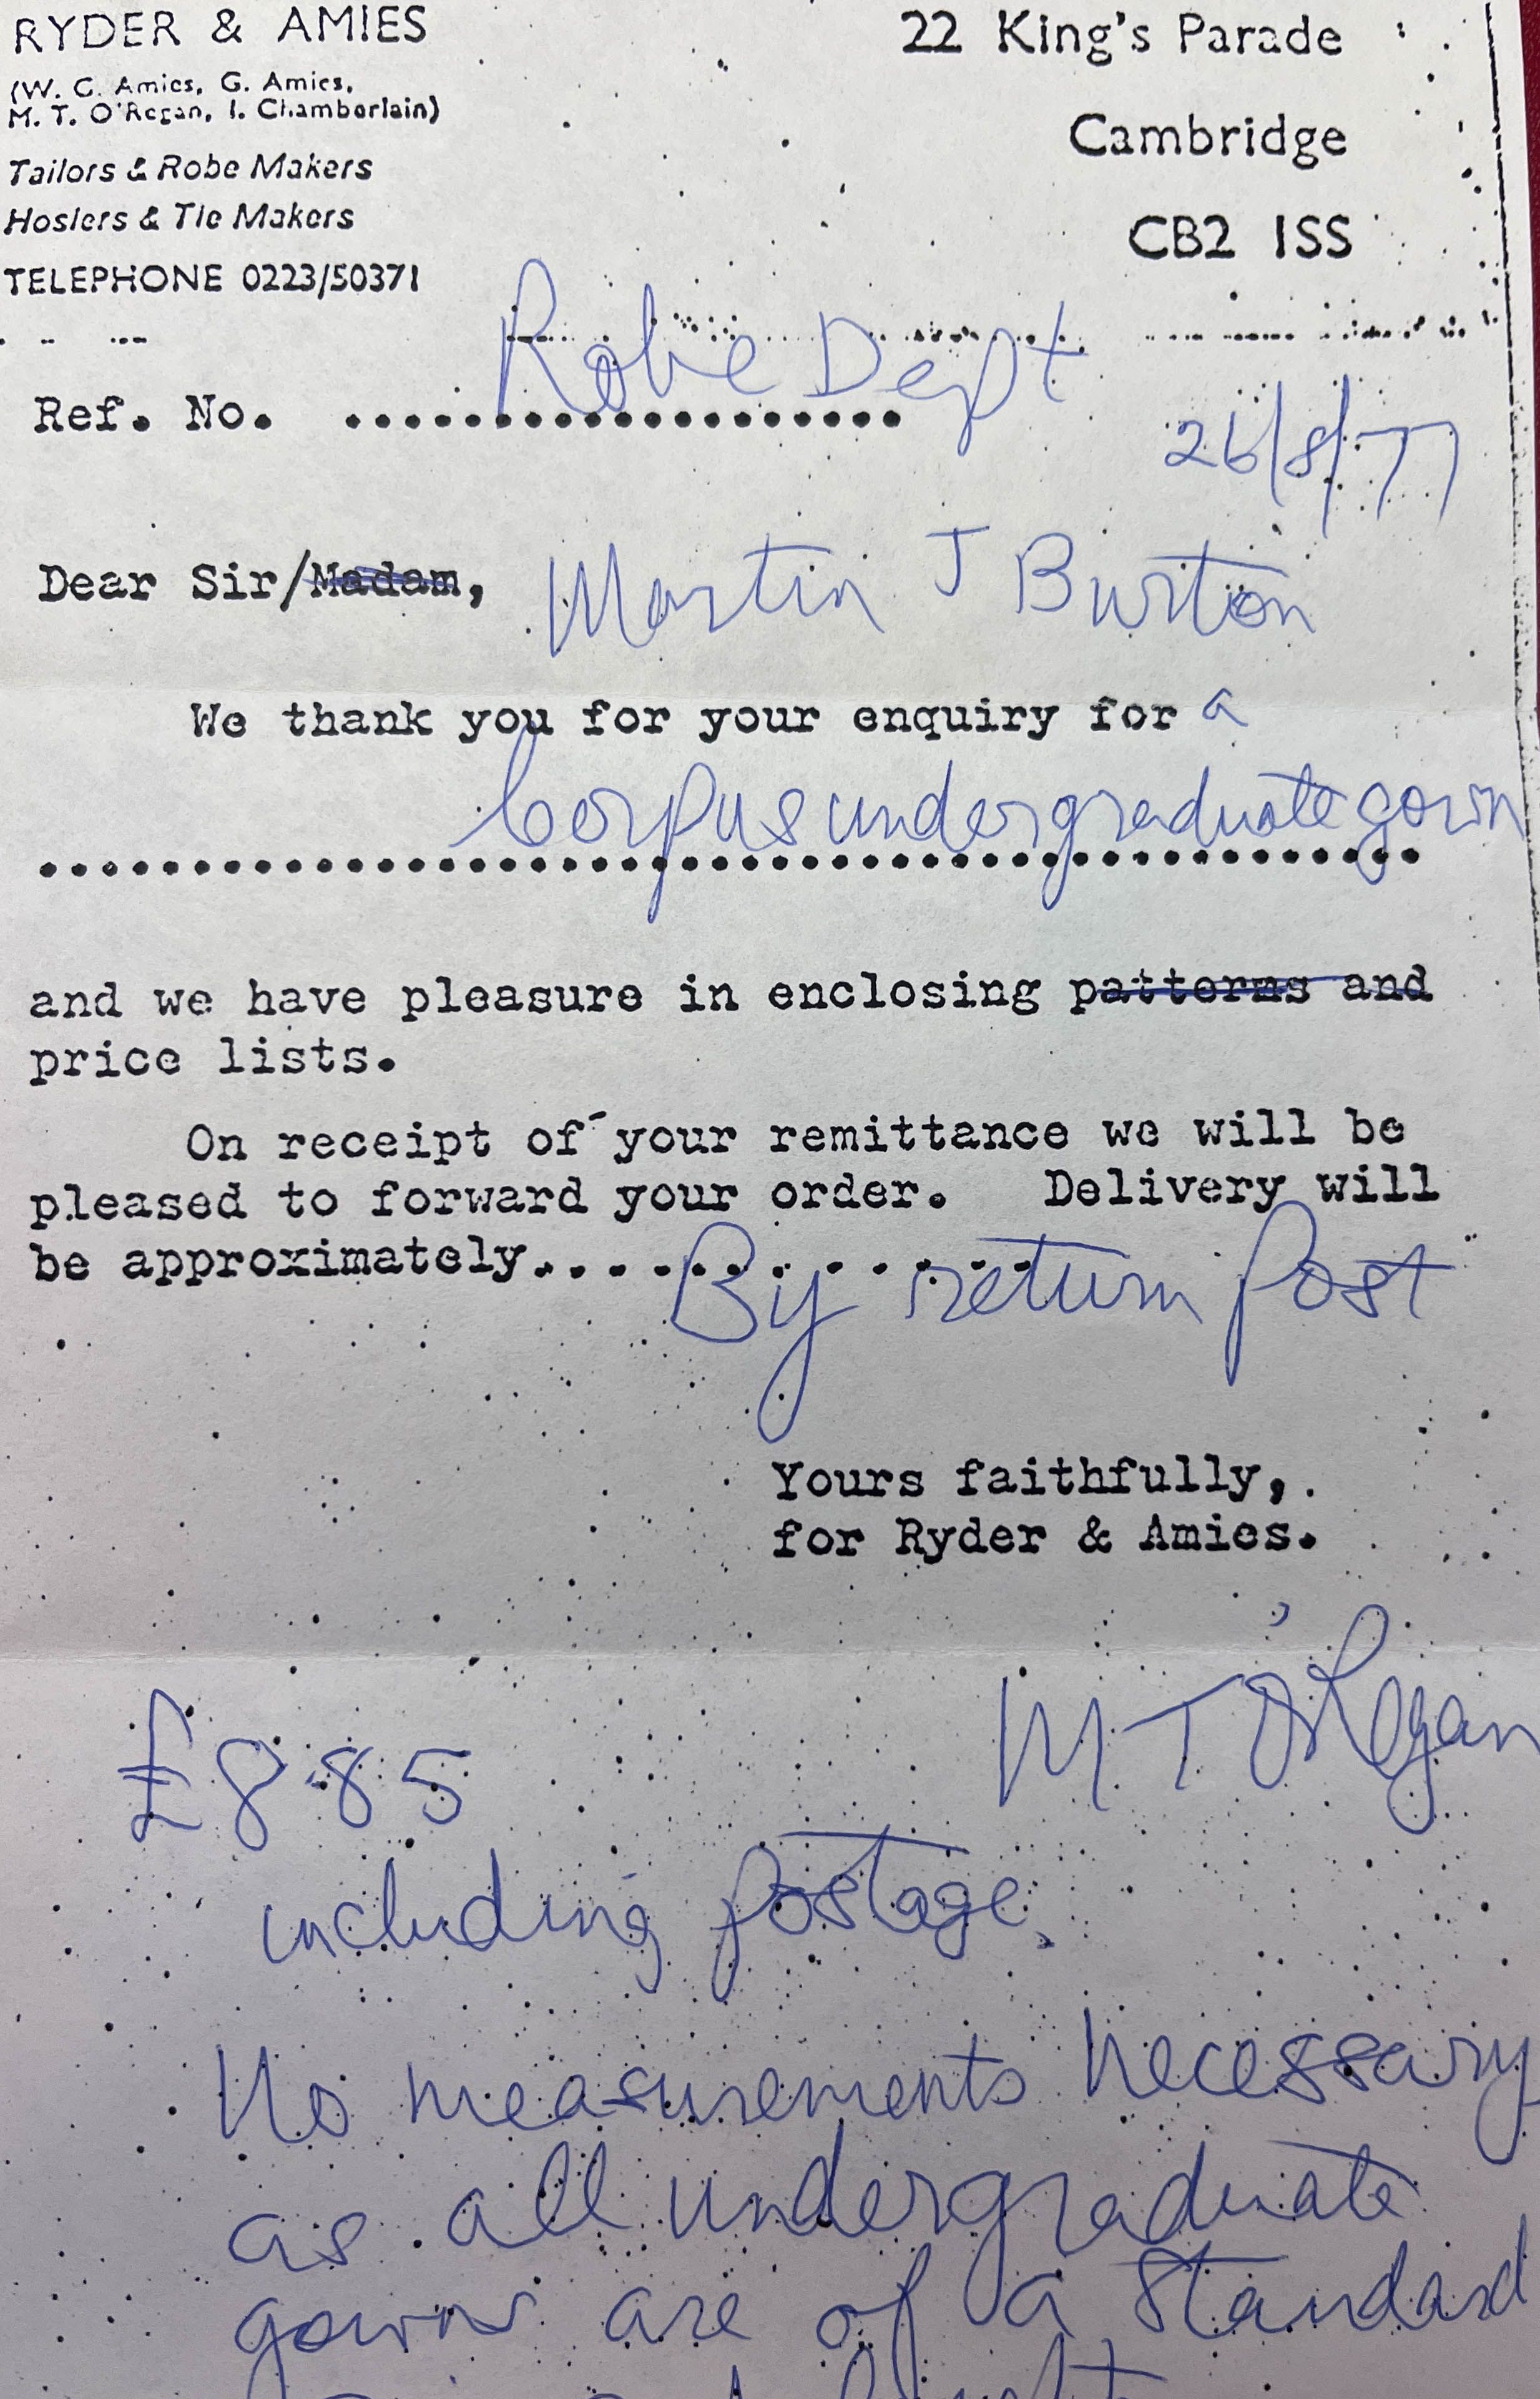 RYDER & AMIES
(W. C. Amies, G. Amies,
M. T. O'Regan, I. Chamberlain)
Tailors & Robe Makers
Hosiers & Tie Makers
TELEPHONE 0223/50371
22 King's Parade
Cambridge
CB2 1SS
Robe Dept
Ref. No. ...................
26/8/77
Dear Sir/Madam, Martin J Burton
We thank you for your enquiry for a
Corpus undergraduate gown
and we have pleasure in enclosing patterns and
price lists.
On receipt of your remittance we will be
pleased to forward your order. Delivery will
be approximately........... By return post
Yours faithfully,
for Ryder & Amies.
M T O'Regan
£8.85
including postage.
No measurements necessary
as all undergraduate
gowns are of a standard